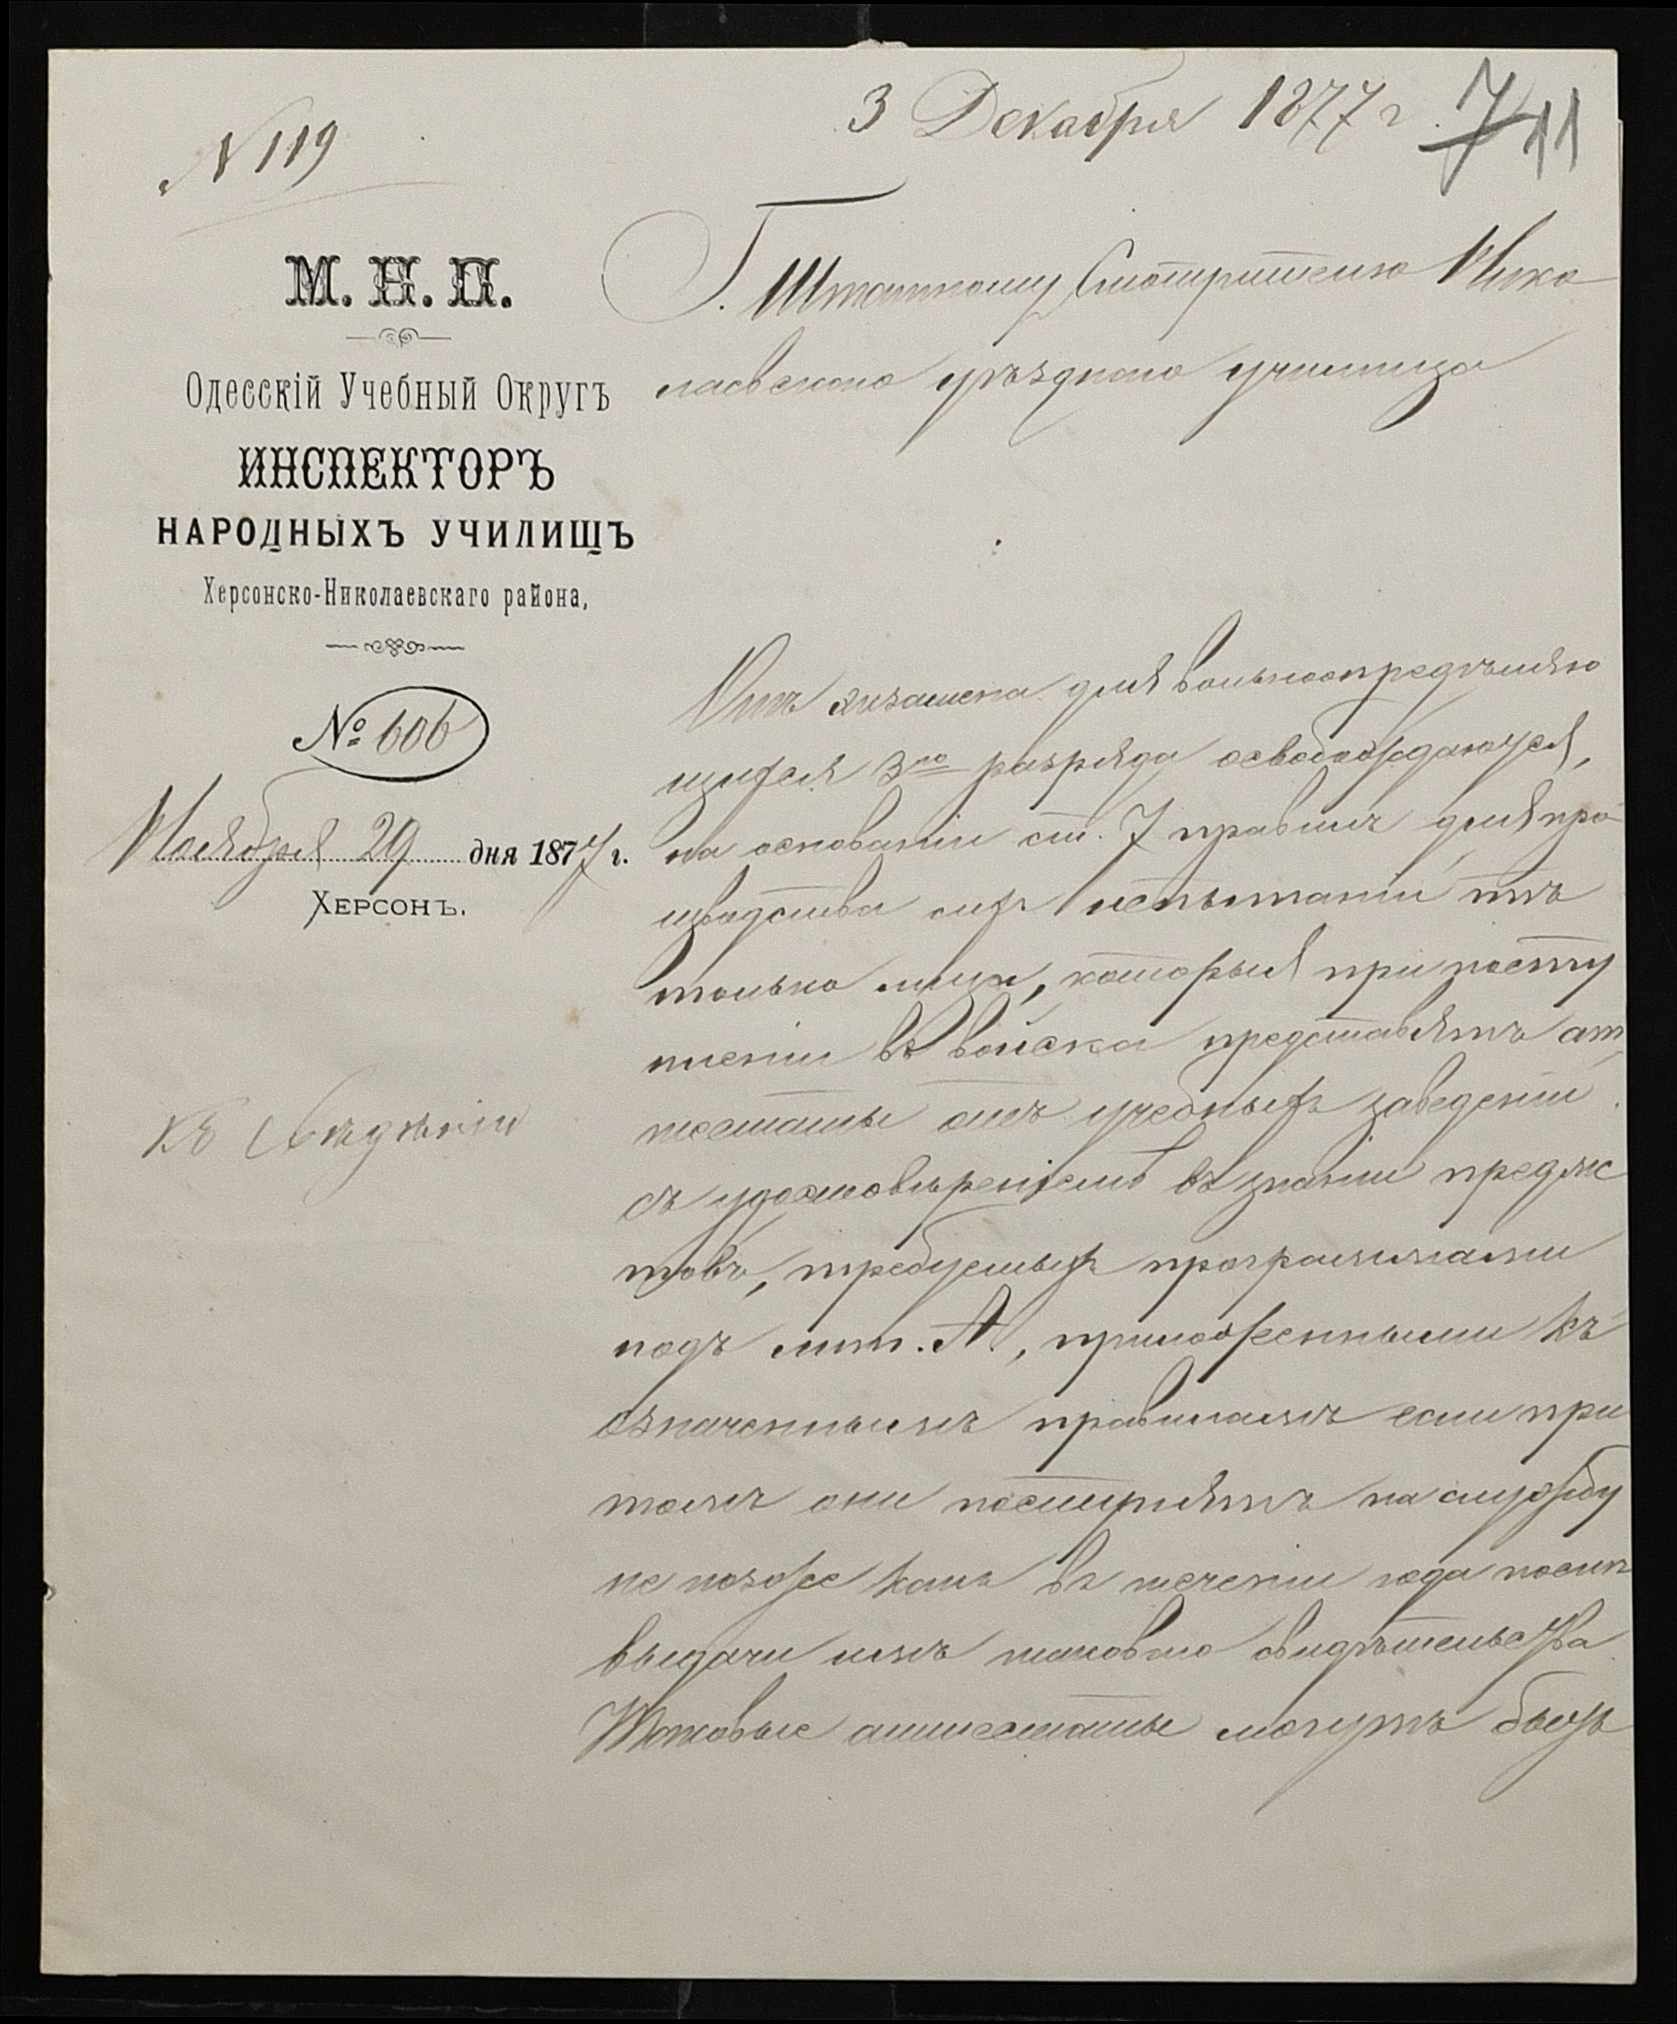 3 Декабря 1877 г. 7 11
N 119
М. Н. П.
Одесскій Учебный Округъ
ИНСПЕКТОРЪ
НАРОДНЫХЪ УЧИЛИЩЪ
Херсонско-Николаевскаго района,
№ 606
Ноября 29 дня 1877 г.
Херсонъ.
Къ свѣдѣнію
Г. Штатному Смотрителю Нико
лаевскаго уѣзднаго училища
Отъ экзамена для вольноопредѣляю
щихся 3го разряда освобождаются,
на основаніи ст. 7 правилъ для про
изводства сихъ испытаній тѣ
только лица, которыя при посту
пленіи въ войска представятъ ат
тестаты отъ учебныхъ заведеній
съ удостовѣреніемъ въ знаніи предме
товъ, требуемыхъ программами
подъ лит. А, приложенными къ
означеннымъ правиламъ если при
томъ они поступятъ на службу
не позже какъ въ теченіи года послѣ
выдачи имъ таковаго свидѣтельства
Таковые аттестаты могутъ быть